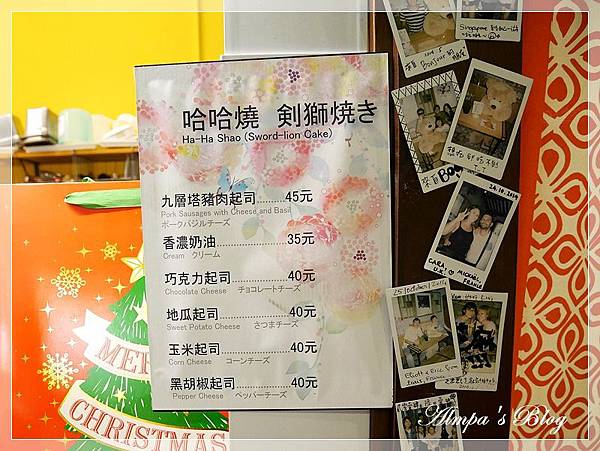 哈哈燒 剣獅焼き
Ha-Ha Shao (Sword-lion Cake)
九層塔豬肉起司..........45元
Pork Sausages with Cheese and Basil
ポークバジルチーズ
香濃奶油..........35元
Cream クリーム
巧克力起司..........40元
Chocolate Cheese チョコレートチーズ
地瓜起司..........40元
Sweet Potato Cheese さつまチーズ
玉米起司..........40元
Corn Cheese コーンチーズ
黑胡椒起司..........40元
Pepper Cheese ペッパーチーズ
MERRY
CHRISTMAS
Singapore
Bonjour
24.10.2014
CARA
FRANCE
25 October 2014
Almpa's Blog